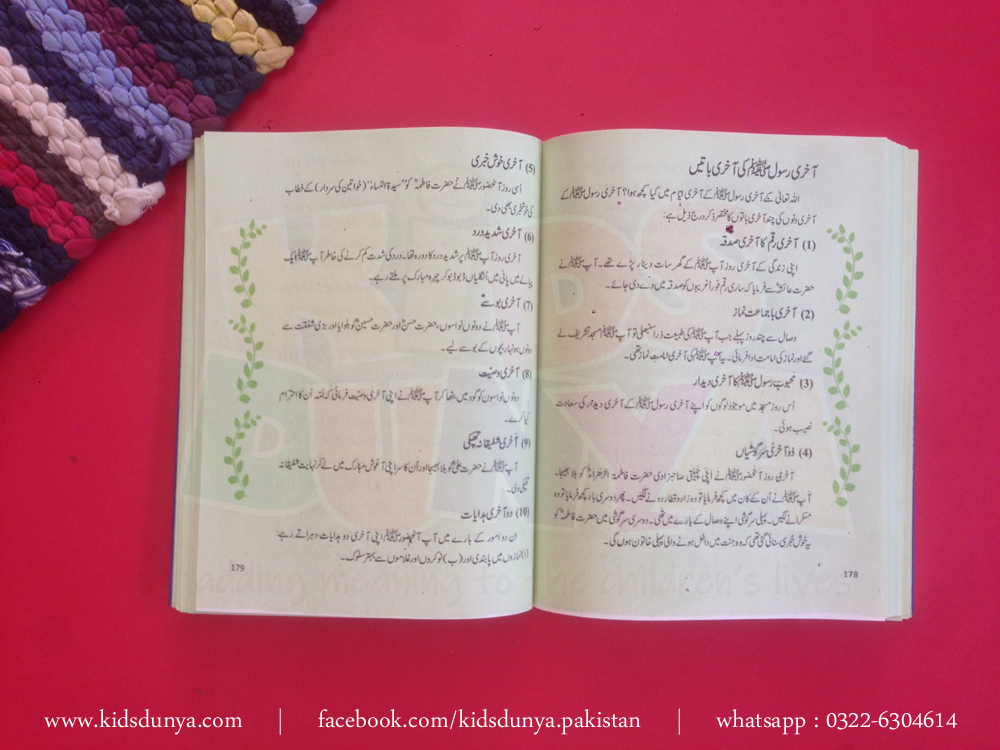 آخری رسول ﷺ کی آخری باتیں
اللہ تعالیٰ کے آخری رسول ﷺ کے آخری ایام میں کیا کچھ ہوا؟ آخری رسول ﷺ کے
آخری دنوں کی چند آخری باتوں کا مختصر ذکر درج ذیل ہے:
(1) آخری رقم کا آخری صدقہ
اپنی زندگی کے آخری روز آپ ﷺ کے گھر سات دینار پڑے تھے۔ آپ ﷺ نے
حضرت عائشہؓ سے فرمایا کہ ساری رقم فوراً غریبوں کو صدقہ میں دے دی جائے۔
(2) آخری باجماعت نماز
وصال سے چند روز پہلے جب آپ ﷺ کی طبیعت ذرا سنبھلی تو آپ ﷺ مسجد تشریف لے
گئے اور نماز کی امامت ادا فرمائی۔ یہ آپ ﷺ کی آخری امامتِ نماز تھی۔
(3) محبوب رسول ﷺ کا آخری دیدار
اُس روز مسجد میں موجود لوگوں کو اپنے آخری رسول ﷺ کے آخری دیدار کی سعادت
نصیب ہوئی۔
(4) دو آخری سرگوشیاں
آخری روز آنحضور ﷺ نے اپنی چہیتی صاحبزادی حضرت فاطمۃ الزھراءؓ کو بلا بھیجا۔
آپ ﷺ نے اُن کے کان میں کچھ فرمایا تو وہ زار و قطار رونے لگیں۔ پھر دوسری بار کچھ فرمایا تو وہ
مسکرانے لگیں۔ پہلی سرگوشی اپنے وصال کے بارے میں تھی۔ دوسری سرگوشی میں حضرت فاطمہؓ کو
یہ خوش خبری سنائی گئی تھی کہ وہ جنت میں داخل ہونے والی پہلی خاتون ہوں گی۔
178
(5) آخری خوش خبری
اُسی روز آنحضور ﷺ نے حضرت فاطمہؓ کو "سیدۃ النساء" (خواتین کی سردار) کے خطاب
کی خوشخبری بھی دی۔
(6) آخری شدید درد
آخری روز آپ ﷺ پر شدید درد کا دورہ تھا۔ درد کی شدت کم کرنے کی خاطر آپ ﷺ ایک
پیالے میں پانی میں اُنگلیاں ڈبو ڈبو کر چہرہ مبارک پر ملتے رہے۔
(7) آخری بوسے
آپ ﷺ نے دونوں نواسوں، حضرت حسنؓ اور حضرت حسینؓ کو بلوایا اور بڑی شفقت سے
دونوں ہونہار بچوں کے بوسے لیے۔
(8) آخری وصیت
دونوں نواسوں کو گود میں بٹھا کر آپ ﷺ نے اپنی آخری وصیت فرمائی کہ اُمت اُن کا احترام
کیا کرے۔
(9) آخری شفیقانہ تھپکی
آپ ﷺ نے حضرت علیؓ کو بلا بھیجا اور اُن کا سر اپنی آغوش مبارک میں لے کر نہایت شفیقانہ
تھپکی دی۔
(10) دو آخری ہدایات
ان دو امور کے بارے میں آپ آنحضور ﷺ اپنی آخری دو ہدایات دہراتے رہے:
(ا) نمازوں میں پابندی اور (ب) نوکروں اور غلاموں سے بہتر سلوک۔
179
KIDS
DUNYA
adding meaning to the children's lives
www.kidsdunya.com | facebook.com/kidsdunya.pakistan | whatsapp : 0322-6304614